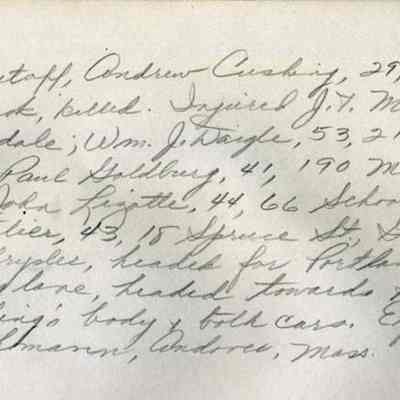 Andrew Cushing, 29,
killed. Injured J. T. M
dale; Wm. J. Daigle, 53, 21
Paul Goldburg, 41, 190 M
John Lizotte, 44, 66 Schoo
tier, 43, 18 Spruce St., S
hrysler, headed for Portlan
lane, headed towards
ing's body & both cars. E
lmann, Andover, Mass.